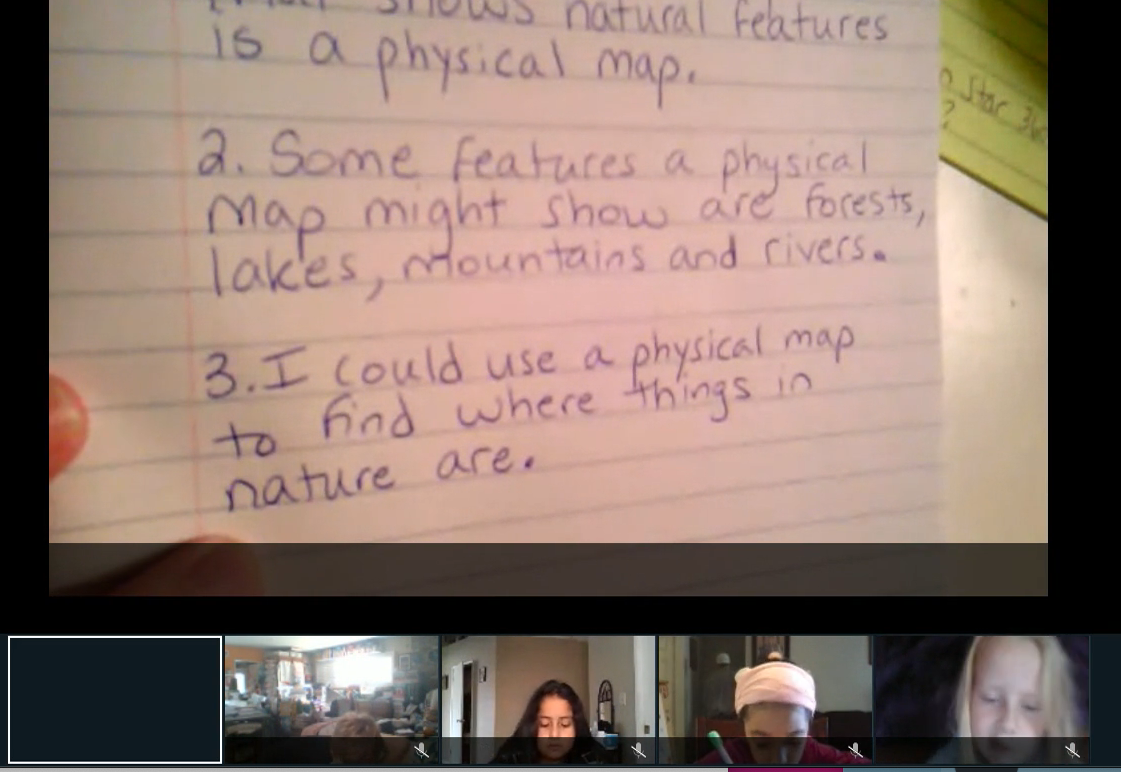 shows natural features
is a physical map.
2. Some features a physical
map might show are forests,
lakes, mountains and rivers.
3. I could use a physical map
to find where things in
nature are.
Star
?